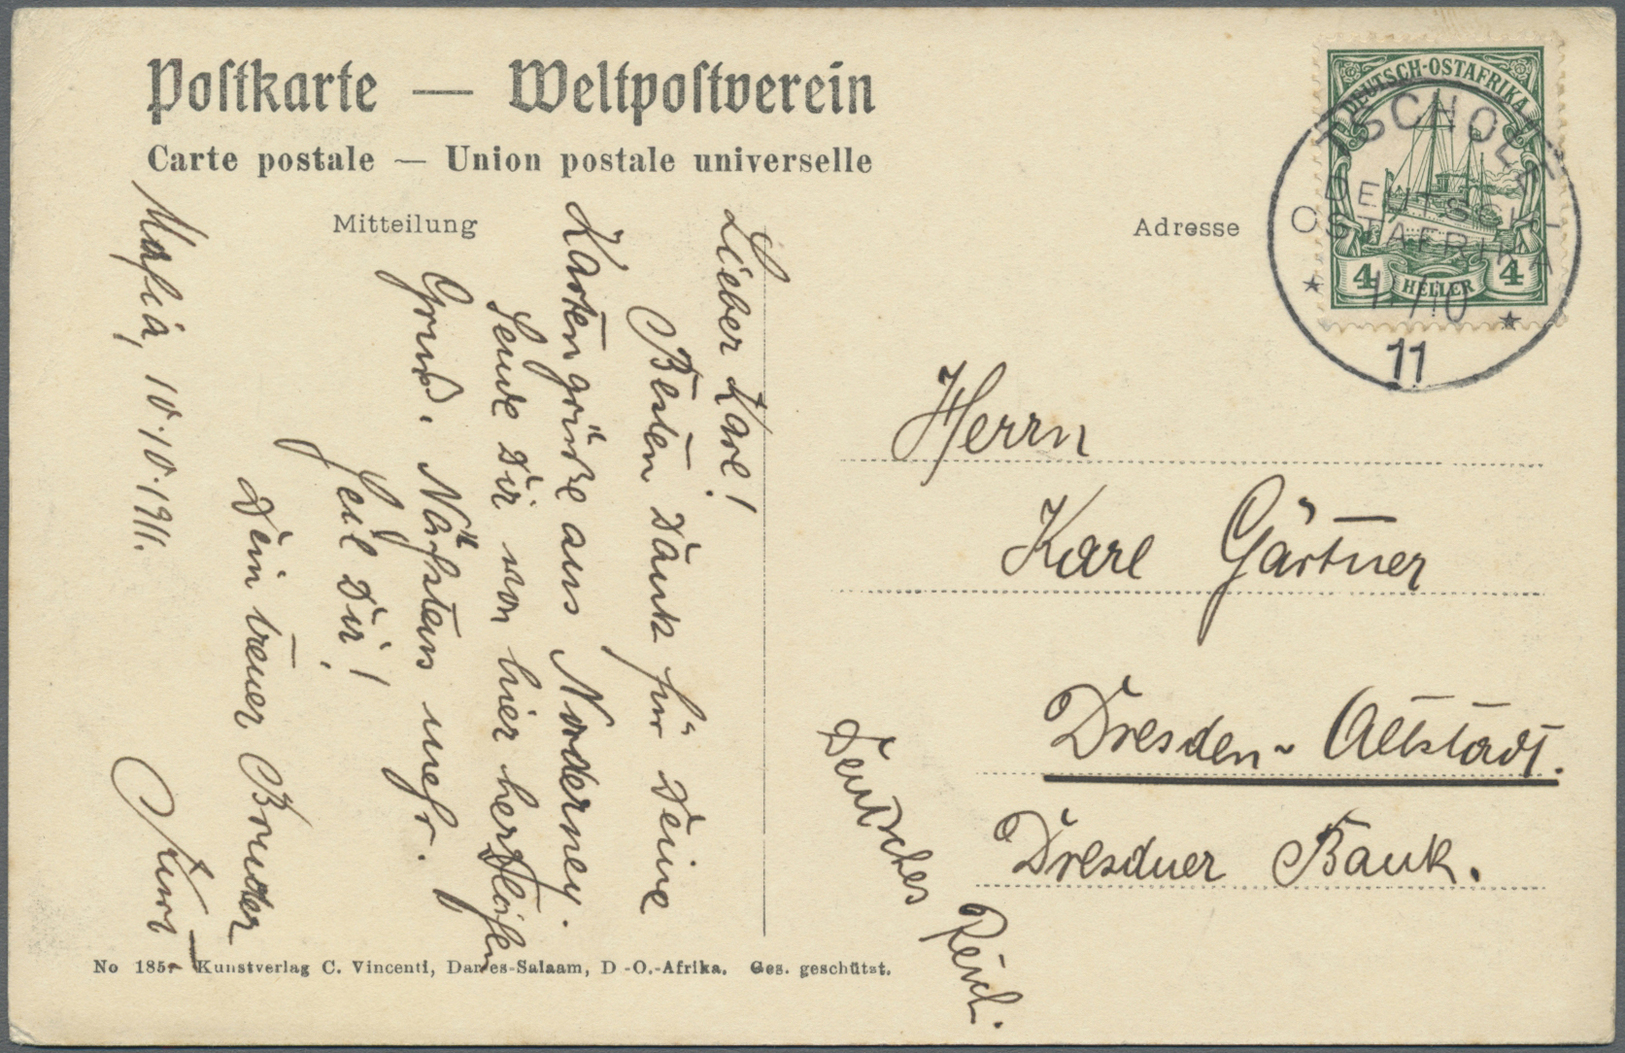 Postkarte — Weltpostverein
Carte postale — Union postale universelle
Mitteilung
Adresse
DEUTSCH-OSTAFRIKA
4 HELLER 4
TSCHOLE
DEUTSCH-
OSTAFRIKA
* 1 /10 *
11
Lieber Karl!
Besten Dank für Deine
Kartengrüße aus Norderney.
Sende Dir von hier herzlichen
Gruß. Nächstens mehr.
Heil Dir!
Dein treuer Bruder
Kurt
Mafia, 10.10.1911.
Herrn
Karl Gärtner
Dresden-Altstadt.
Dresdner Bank.
Deutsches Reich.
No 185. Kunstverlag C. Vincenti, Dar-es-Salaam, D.-O.-Afrika. Ges. geschützt.